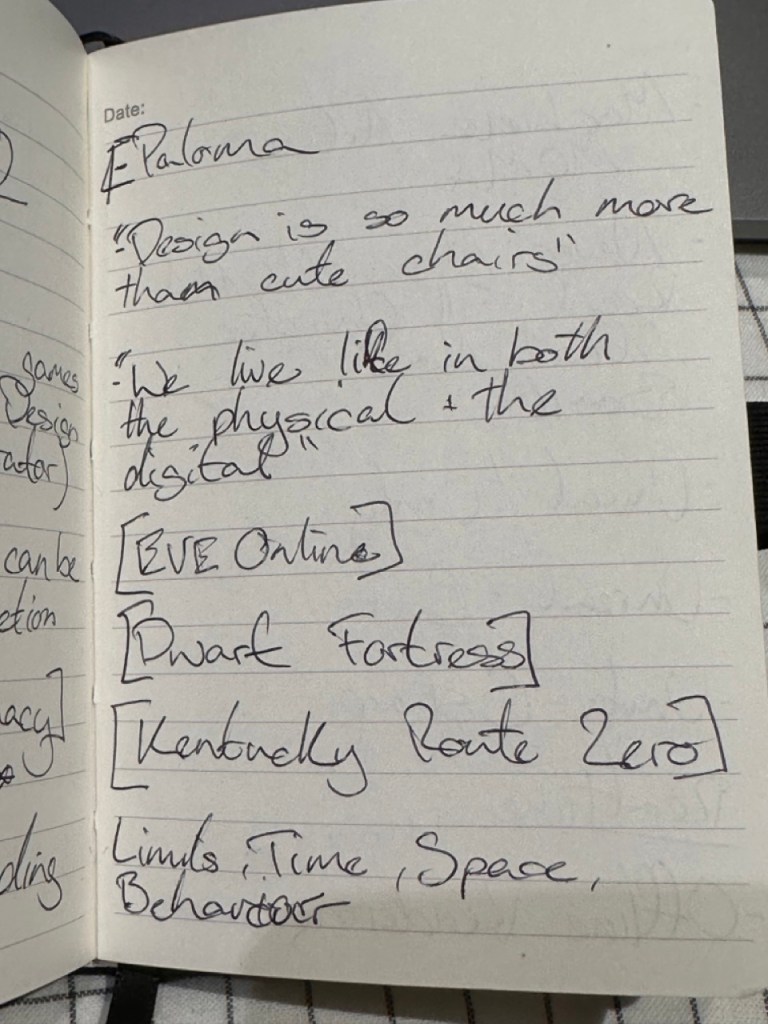 games
Design
can be
Date:
Paloma
"Design is so much more
than cute chairs"
"We live life in both
the physical + the
digital"
[EVE Online]
[Dwarf Fortress]
[Kentucky Route Zero]
Limits, Time, Space,
Behaviour